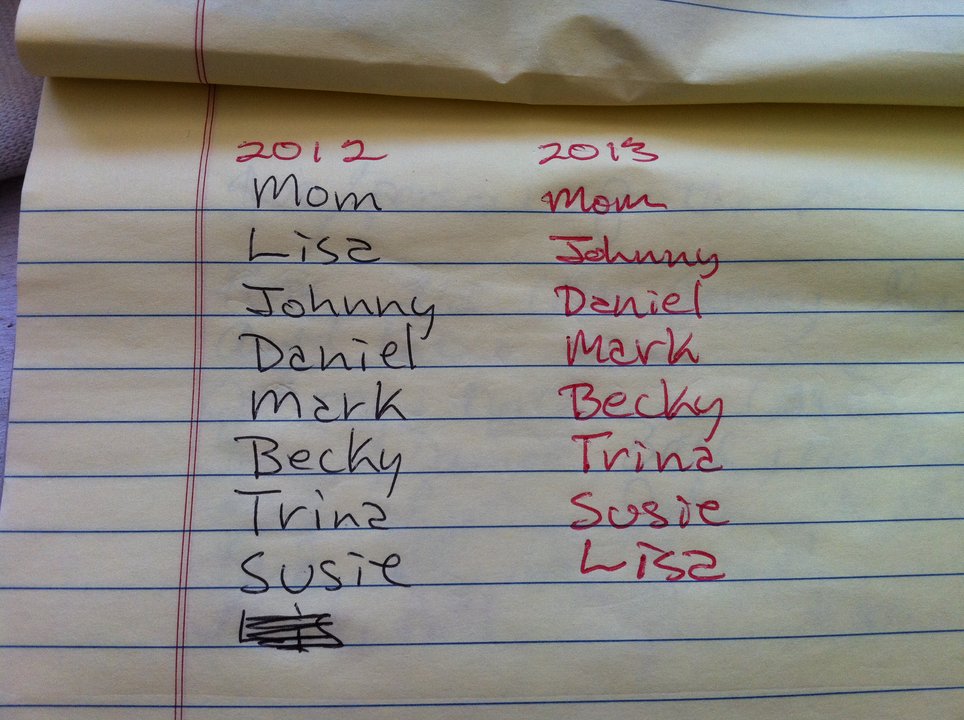 2012
Mom
Lisa
Johnny
Daniel
Mark
Becky
Trina
Susie
2013
Mom
Johnny
Daniel
Mark
Becky
Trina
Susie
Lisa